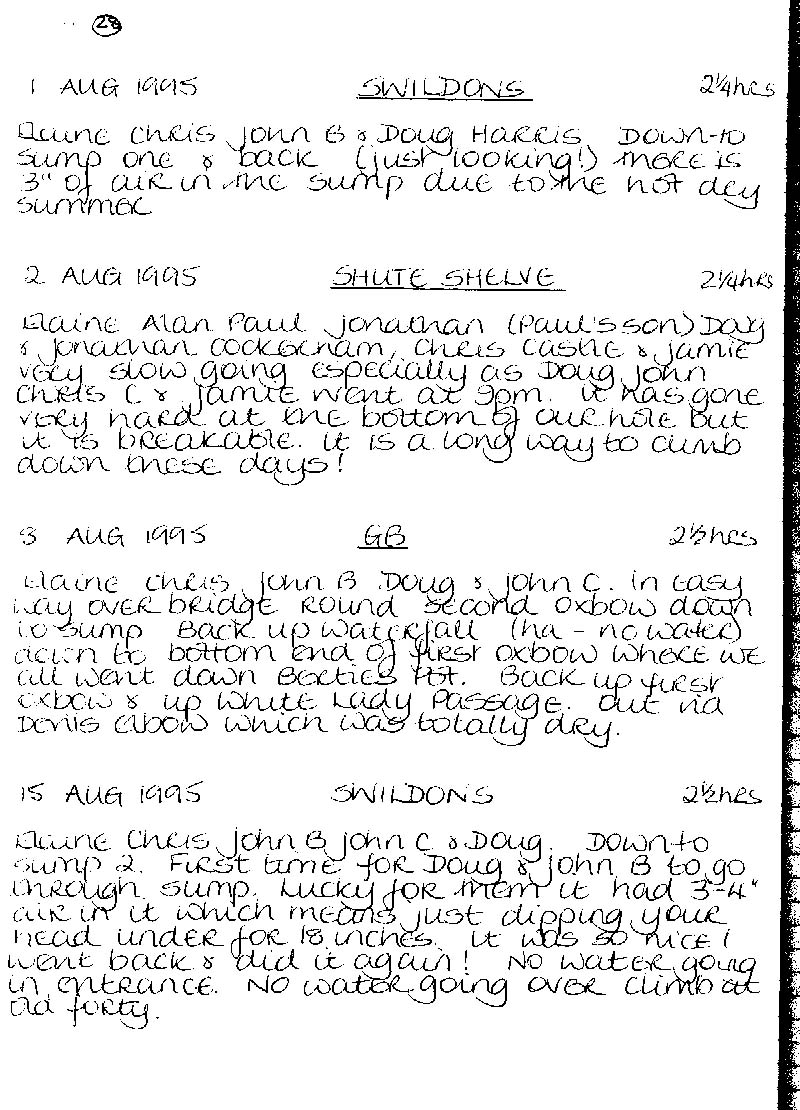 28
1 AUG 1995 SWILDONS 2¼hrs
Elaine Chris John B & Doug Harris Down to
sump one & back (just looking!) There is
3" of air in the sump due to the hot dry
summer
2 AUG 1995 SHUTE SHELVE 2¼hrs
Elaine Alan Paul Jonathan (Paul's son) Dav
& Jonathan Cockerham, Chris Castle & Jamie
very slow going especially as Doug John
Chris C & Jamie went at 9pm. It has gone
very hard at the bottom of our hole but
it is breakable. It is a long way to climb
down these days!
8 AUG 1995 GB 2½hrs
Elaine Chris John B Doug & John C. In easy
way over bridge round second oxbow down
to sump Back up waterfall (ha - no water)
down to bottom end of first oxbow where we
all went down Berties Pot. Back up first
oxbow & up White Lady Passage. Out via
Devils elbow which was totally dry.
15 AUG 1995 SWILDONS 2½hrs
Elaine Chris John B John C & Doug. Down to
sump 2. First time for Doug & John B to go
through sump. Lucky for them it had 3"-4"
air in it which means just dipping your
head under for 18 inches. It was so nice I
went back & did it again! No water going
in entrance. No water going over climb at
old forty.